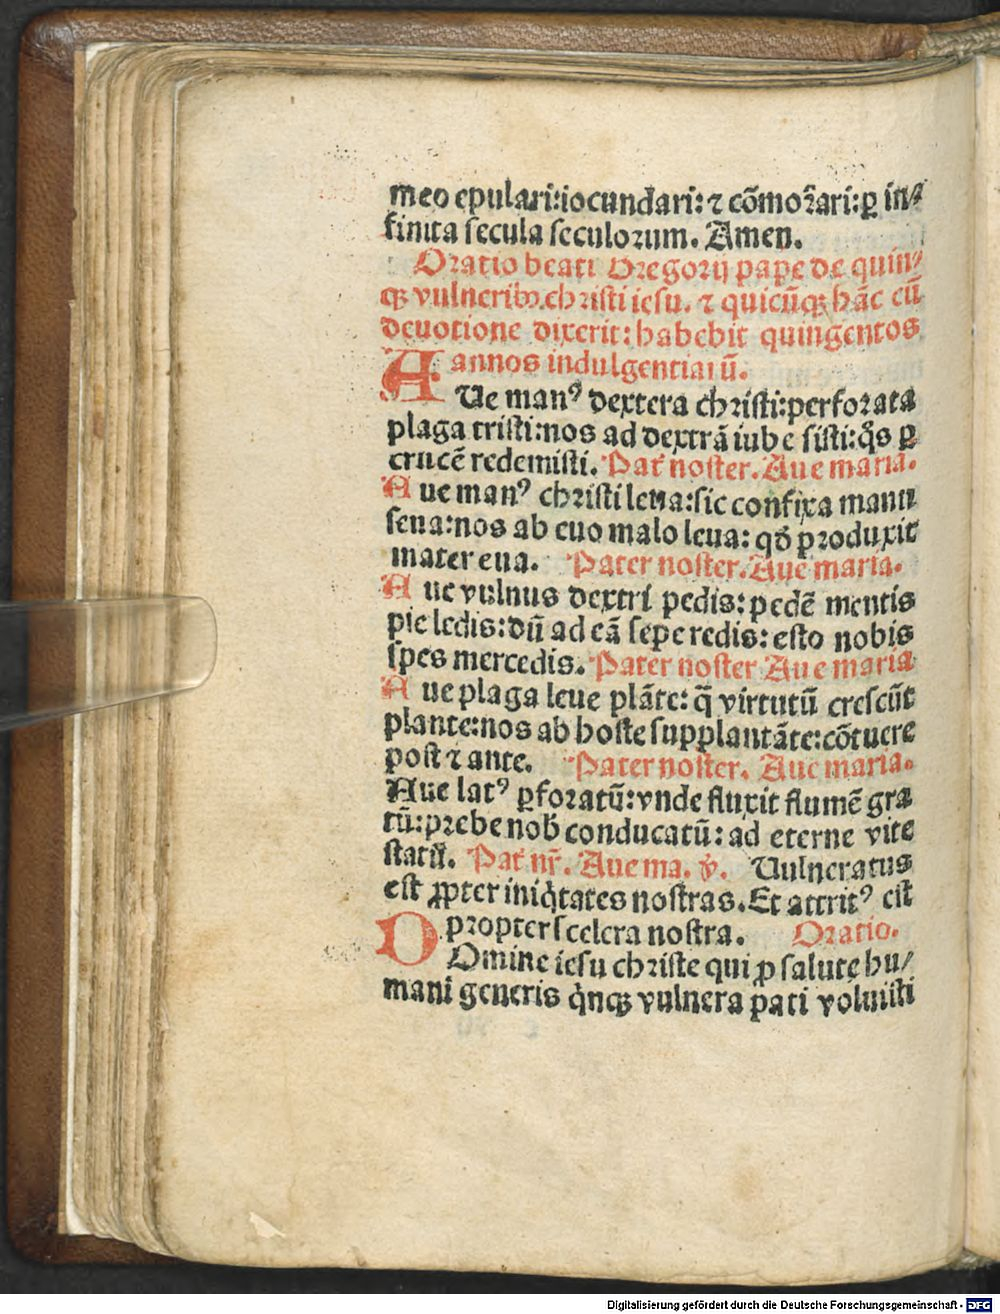 meo epulari:iocundari:⁊ cōmoꝛ̃ari:ꝑ in⸗
finita ſecula ſeculoꝛum. Amen.
Oꝛatio beati Gregorij pape de quin⸗
qꝫ vulneribꝰ.chꝛiſti ieſu. ⁊ quicūqꝫ hāc cū
deuotione dixerit: habebit quingentos
annos indulgentiarū.
A Ue manꝰ dextera chꝛiſti:perfoꝛata
plaga triſti:nos ad dextrā iube ſiſti:q̄s ꝑ
crucē redemiſti. Pat̄ noſter. Aue maria.
A ue manꝰ chꝛiſti leua:ſic confixa manu
ſeua:nos ab euo malo leua: qđ pꝛoduxit
mater eua. Pater noſter. Aue maria.
A ue vulnus dextri pedis: pedē mentis
pie ledis: dū ad eā ſepe redis: eſto nobis
ſpes mercedis. Pater noſter Aue maria
A ue plaga leue plāte: q̄ virtutū creſcūt
plante:nos ab hoſte ſupplantāte:cōtuere
poſt ⁊ ante. Pater noſter. Aue maria.
Aue latꝰ ꝑfoꝛatū:vnde fluxit flumē gra
tū:pꝛebe nob̄ conducatū: ad eterne vite
ſtatū. Pat̄ nr̄. Aue ma. v̄. Uulneratus
eſt ꝓpter iniq̇tates noſtras. Et attritꝰ eſt
pꝛopter ſcelera noſtra. Oꝛatio.
D Omine ieſu chꝛiſte qui ꝓ ſalute hu⸗
mani generis q̇nqꝫ vulnera pati voluiſti
Digitalisierung gefördert durch die Deutsche Forschungsgemeinschaft - DFG